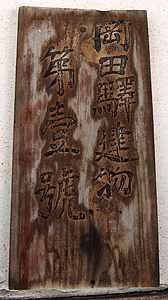 岡田驛建物
第壹號